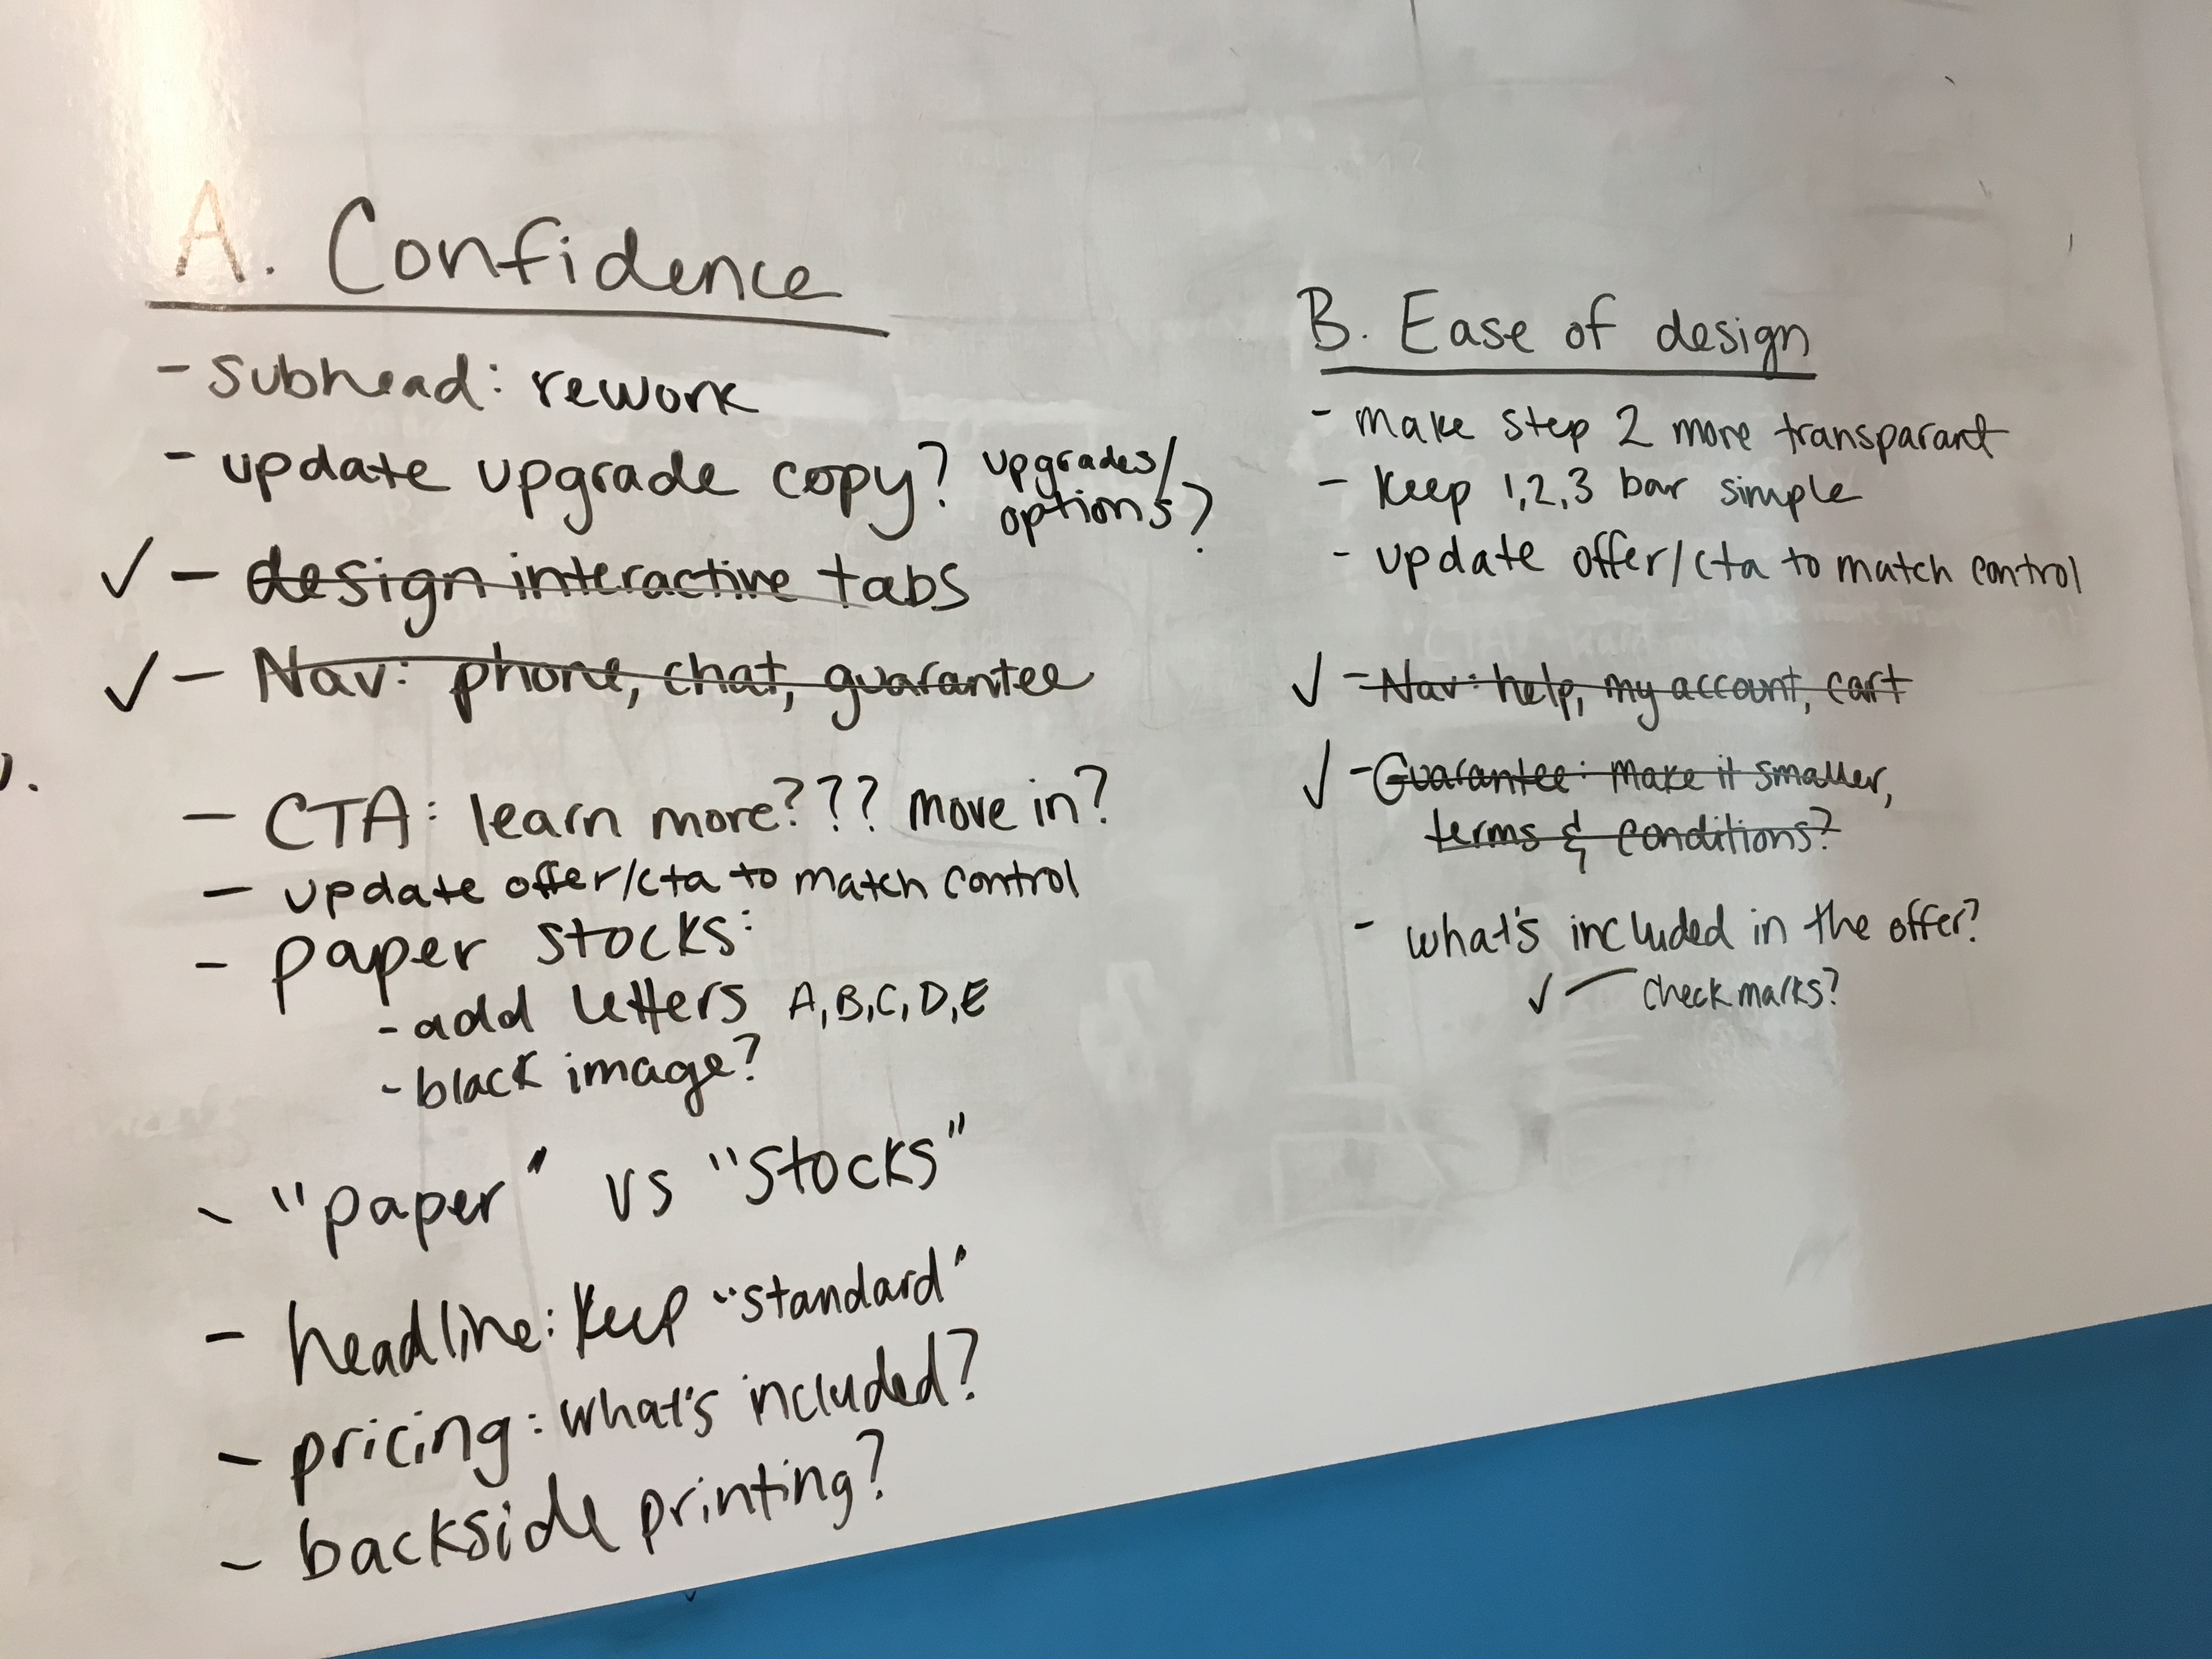 A. Confidence
- subhead: rework
- update upgrade copy? upgrades/
options?
✓ - design interactive tabs
✓ - Nav: phone, chat, guarantee
- CTA: learn more??? move in?
- update offer/cta to match control
- paper stocks:
- add letters A,B,C,D,E
- black image?
- "paper" vs "stocks"
- headline: keep "standard"
- pricing: what's included?
- backside printing?
B. Ease of design
- make step 2 more transparant
- keep 1,2,3 bar simple
- update offer/cta to match control
✓ - Nav: help, my account, cart
✓ - Guarantee: make it smaller,
terms & conditions?
- what's included in the offer?
✓ — check marks?